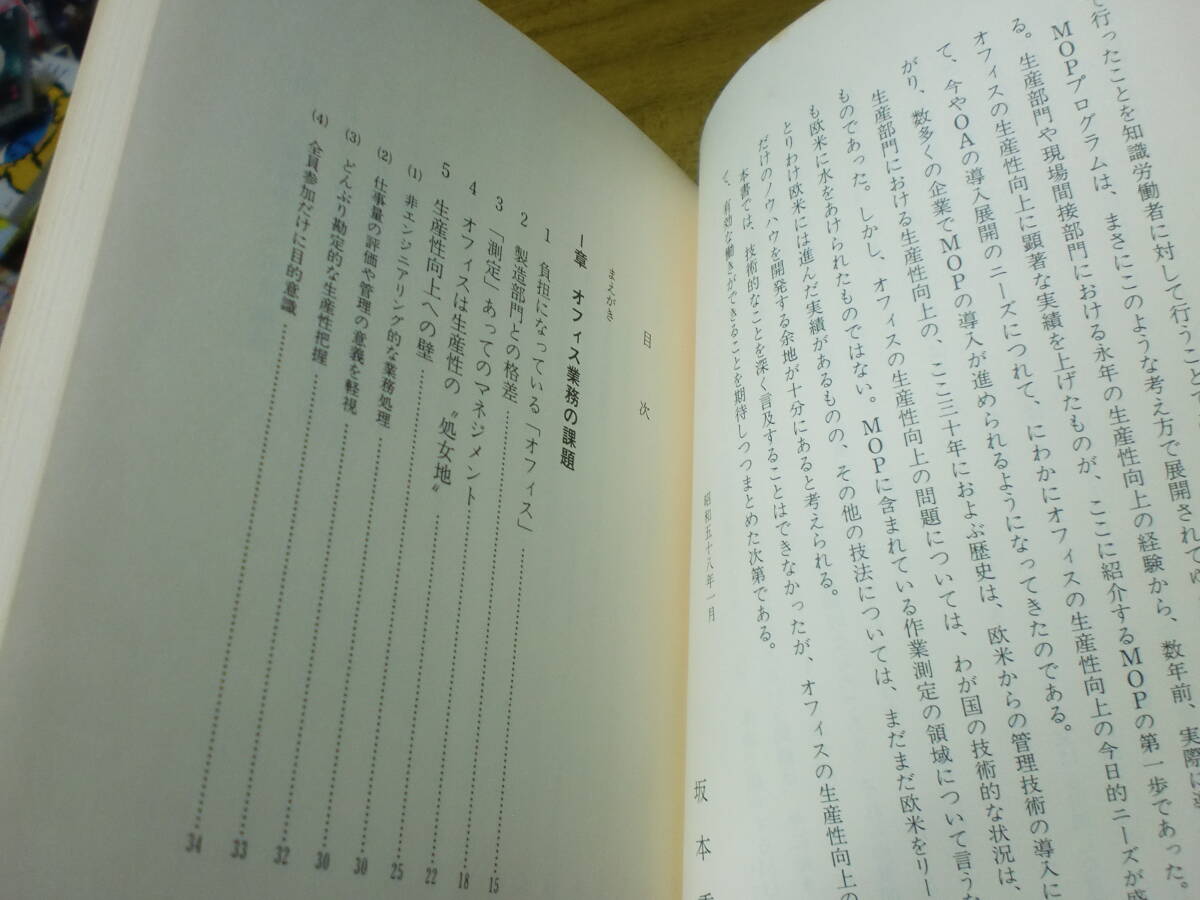 て行ったことを知識労働者に対して行うこと
MOPプログラムは、まさにこのような考え方で展開されて
る。生産部門や現場間接部門における永年の生産性向上の経験から、数年前、実際に
オフィスの生産性向上に顕著な実績を上げたものが、ここに紹介するMOPの第一歩であった。
て、今やOAの導入展開のニーズにつれて、にわかにオフィスの生産性向上の今日的ニーズが成
がり、数多くの企業でMOPの導入が進められるようになってきたのである。
生産部門における生産性向上の、ここ三十年におよぶ歴史は、欧米からの管理技術の導入に
ものであった。しかし、オフィスの生産性向上の問題については、わが国の技術的な状況は、
も欧米に水をあけられたものではない。MOPに含まれている作業測定の領域について言うな
とりわけ欧米には進んだ実績があるものの、その他の技法については、まだまだ欧米をリー
だけのノウハウを開発する余地が十分にあると考えられる。
本書では、技術的なことを深く言及することはできなかったが、オフィスの生産性向上の
く、有効な働きができることを期待しつつまとめた次第である。
昭和五十八年一月
坂本
目次
まえがき
Ⅰ章 オフィス業務の課題
1 負担になっている「オフィス」……15
2 製造部門との格差……18
3 「測定」あってのマネジメント……22
4 オフィスは生産性の〝処女地〟……25
5 生産性向上への壁……30
(1) 非エンジニアリング的な業務処理……30
(2) 仕事量の評価や管理の意義を軽視……32
(3) どんぶり勘定的な生産性把握……33
(4) 全員参加だけに目的意識……34